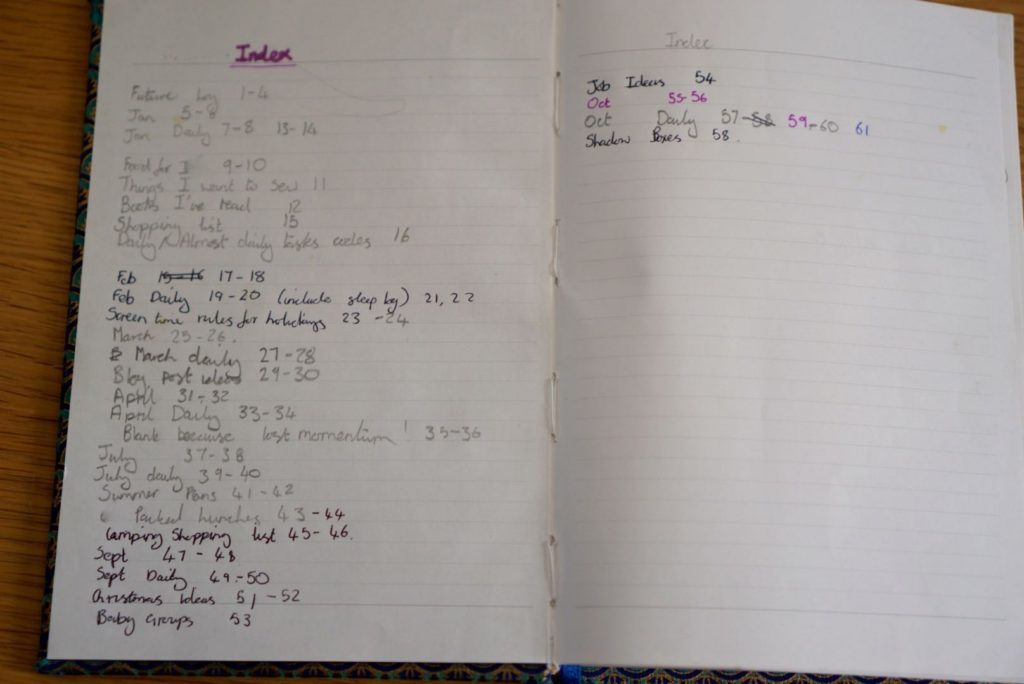 Index
Future Log 1-4
Jan 5-8
Jan Daily 7-8 13-14
Food for I 9-10
Things I want to sew 11
Books I've read 12
Shopping list 15
Daily & Almost daily tasks codes 16
Feb 15-16 17-18
Feb Daily 19-20 (include sleep log) 21, 22
Screen time rules for holidays 23 -24
March 25-26.
March daily 27-28
Blog post ideas 29-30
April 31-32
April Daily 33-34
Blank because lost momentum! 35-36
July 37-38
July daily 39-40
Summer Plans 41-42
Packed Lunches 43-44
Camping Shopping list 45-46.
Sept 47-48
Sept Daily 49-50
Christmas Ideas 51-52
Baby Groups 53
Index
Job Ideas 54
Oct 55-56
Oct Daily 57-58 59-60 61
Shadow Boxes 58.